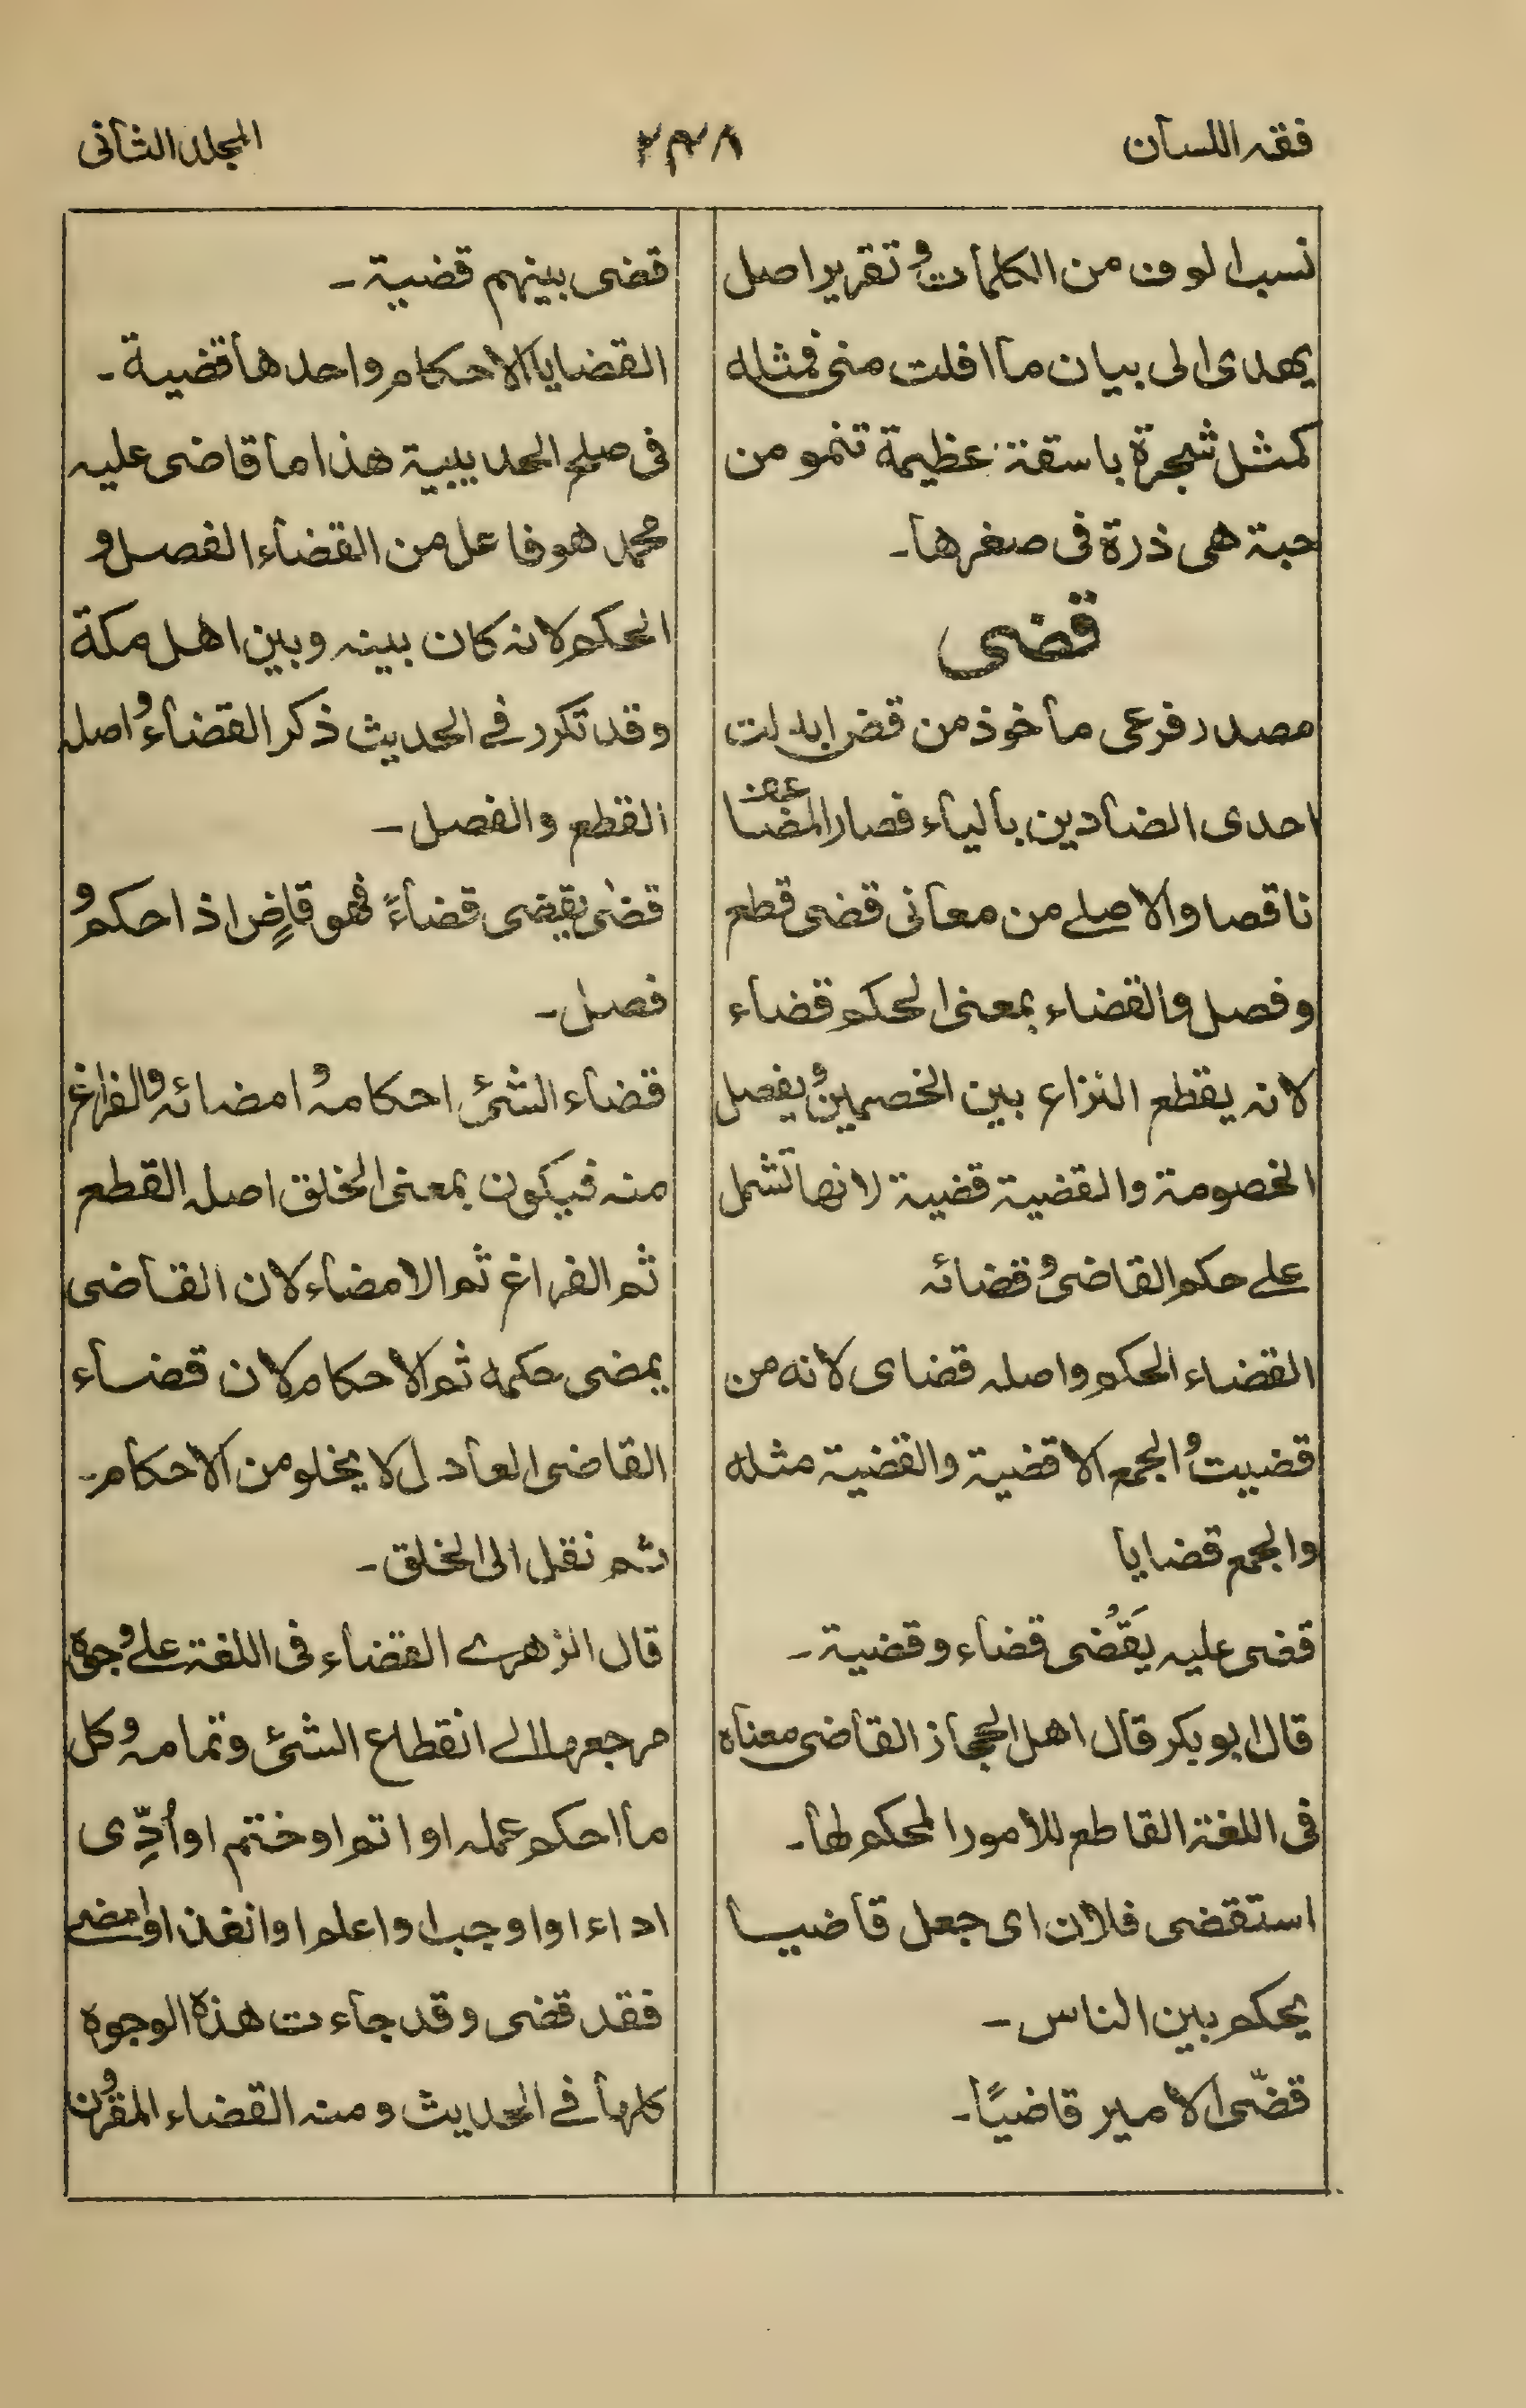 فقه اللسان
٢٣٨
المجلد الثانى
نسب الوف من الكلمات و تقرير اصل
يهدى الى بيان ما افلت منى فمثله
كمثل شجرة باسقة عظيمة تنمو من
حبة هى ذرة فى صغرها۔
قضى
مصدر فرعى ماخوذ من قض ابدلت
احدى الضادين بالياء فصار المضا
ناقصا والاصلے من معانى قضى قطع
وفصل والقضاء بمعنى الحكم قضاء
لانه يقطع النزاع بين الخصمين و يفصل
الخصومة والقضية قضية لانها تشمل
علے حكم القاضى و قضائه
القضاء الحكم واصله قضاى لانه من
قضيت و الجمع الاقضية والقضية مثله
والجمع قضايا
قضى عليه يَقُضى قضاء وقضية۔
قال ابو بكر قال اهل الحجاز القاضى معناه
فى اللغة القاطع للامور المحكم لها۔
استقضى فلان اى جعل قاضيا
يحكم بين الناس۔
قضّى الامير قاضيًا۔
قضى بينهم قضية۔
القضايا الاحكام واحدها قضية۔
فى صلح الحديبية هذا ما قاضى عليه
محمد هو فاعل من القضاء الفصل و
الحكم لانه كان بينه وبين اهل مكة
وقد تكرر فے الحديث ذكر القضاء و اصله
القطع والفصل۔
قضىٰ يقضى قضاءً فهو قاضٍ اذا حكم و
فصل۔
قضاء الشئ احكامه و امضائه والفراغ
منه فيكون بمعنى الخلق اصله القطع
ثم الفراغ ثم الامضاء لان القاضى
يمضى حكمه ثم الاحكام لان قضاء
القاضى العادل لا يخلو من الاحكام۔
ثم نقل الى الخلق۔
قال الزهرے القضاء فى اللغة علے وجوه
مرجعها الے انقطاع الشئ وتمامه و كل
ما احكم عمله او اتم او ختم او اُدِّى
اداء او اوجب او اعلم او انفذ او امضے
فقد قضى وقد جاءت هذه الوجوه
كلها فے الحديث ومنه القضاء المقرون